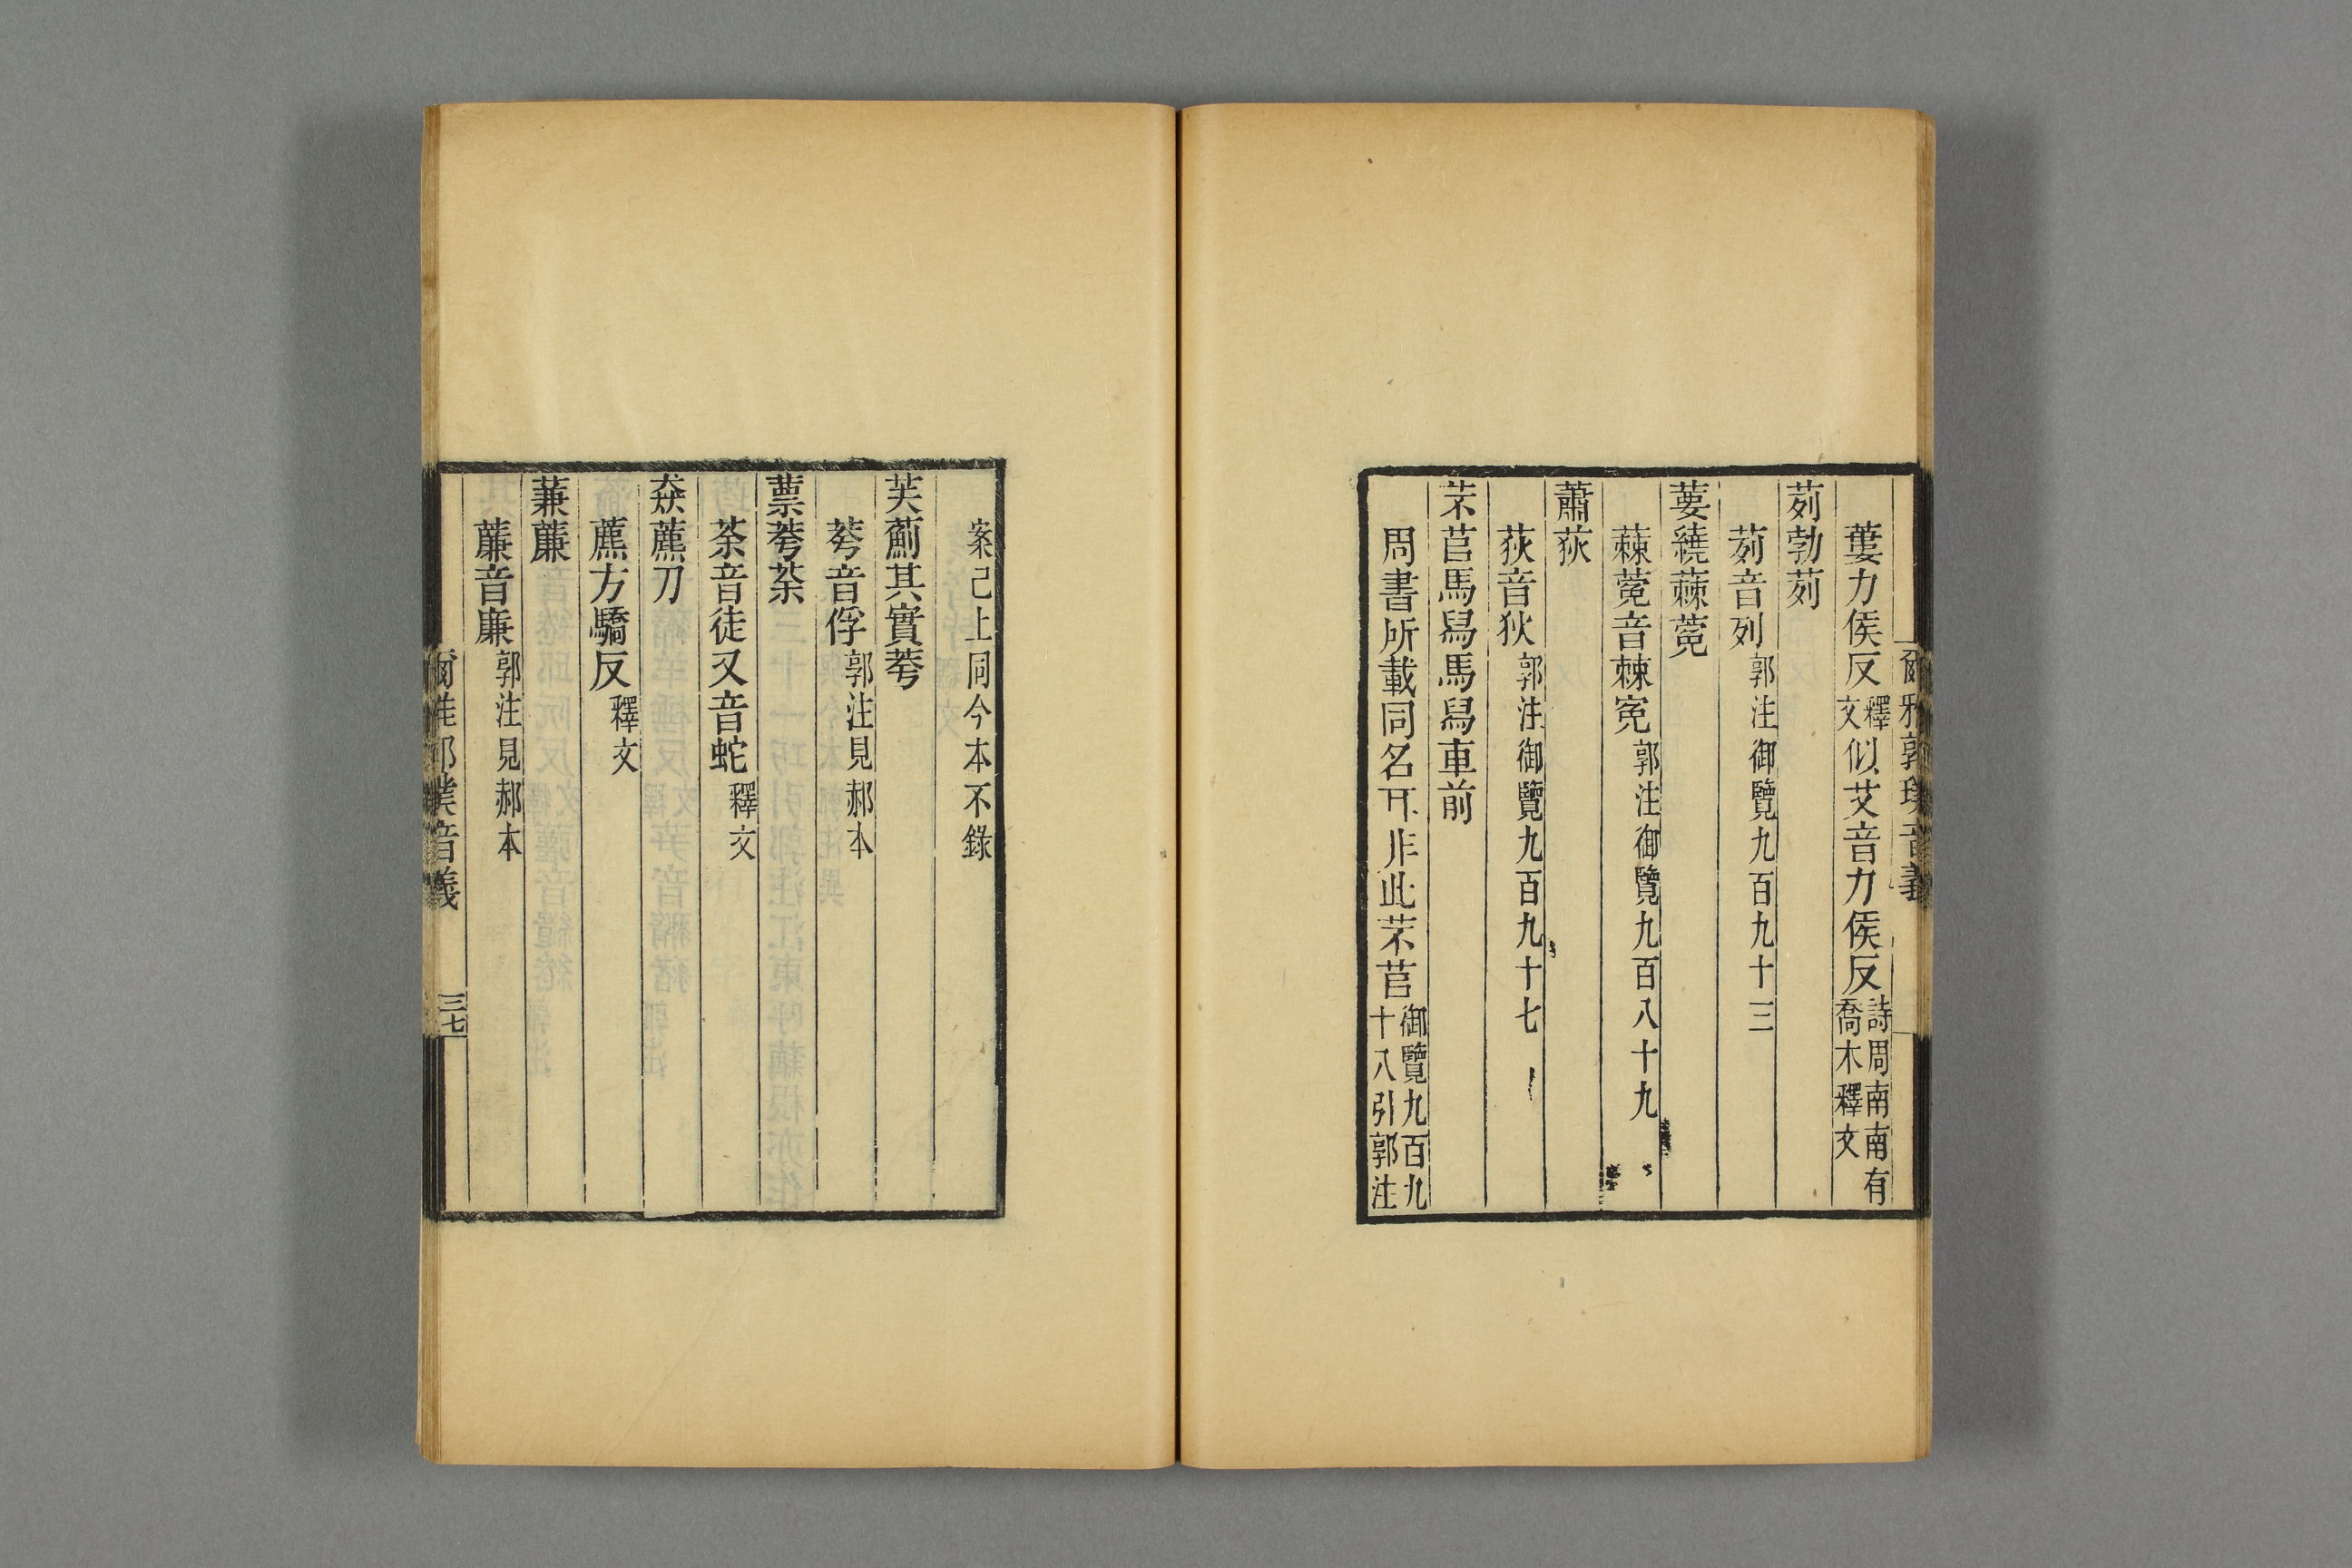 爾雅郭璞音義
蔞力侯反釋文似艾音力侯反詩周南南有喬木釋文
茢勃茢
茢音列郭注御覽九百九十三
葽繞蕀蒬
蕀蒬音棘冤郭注御覽九百八十九
蕭荻
荻音狄郭注御覽九百九十七
芣苢馬舃馬舃車前
周書所載同名耳非此芣苢御覽九百九十八引郭注
案已上同今本不錄
芙薊其實荂
荂音俘郭注見郝本
蔈荂荼
荼音徒又音蛇釋文
猋藨刀
藨方驕反釋文
蒹薕
薕音廉郭注見郝本
爾雅郭璞音義
三七